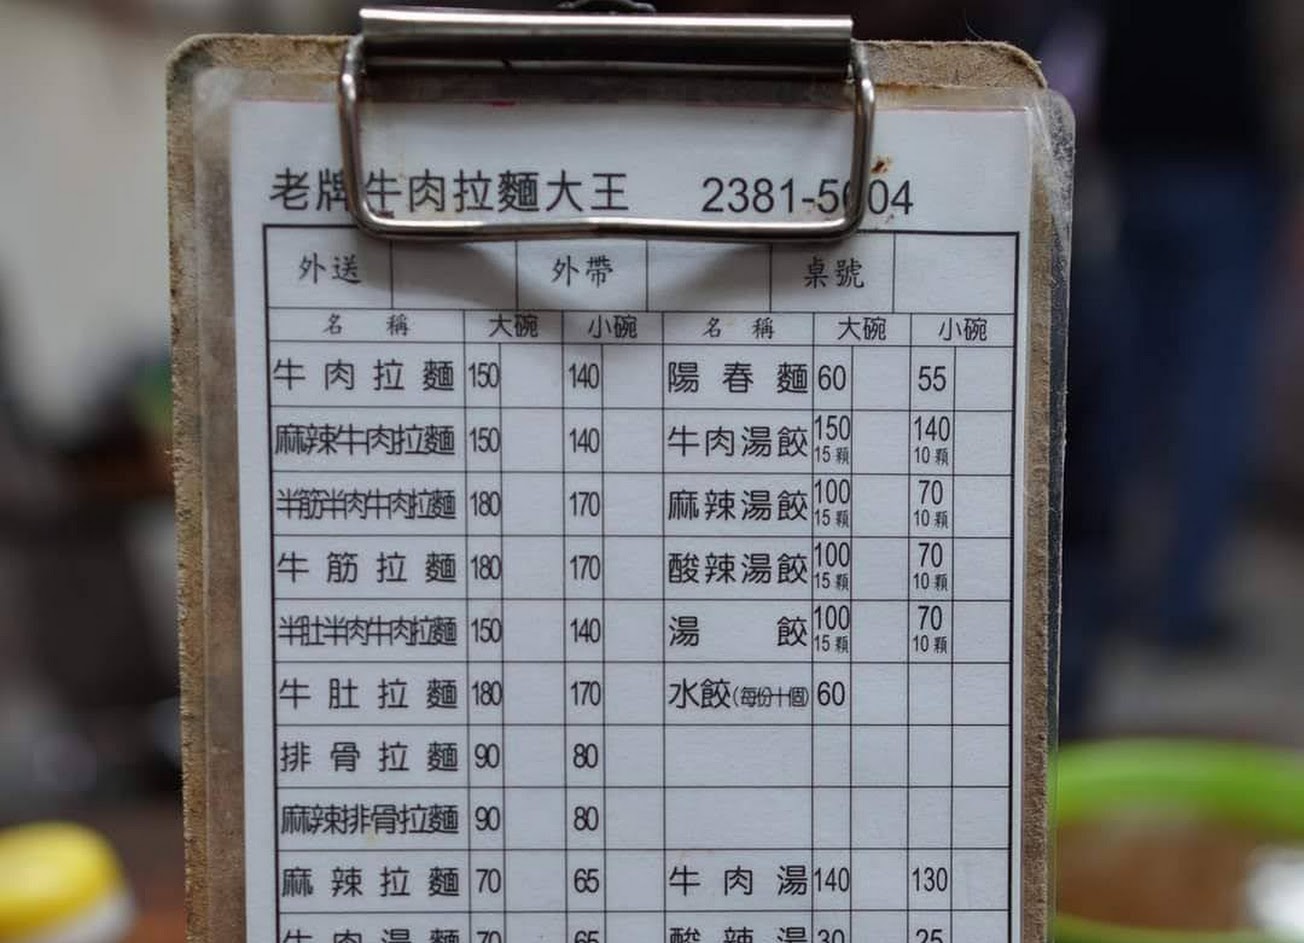 老牌牛肉拉麵大王 2381-5004
外送 外帶 桌號
名稱 大碗 小碗 名稱 大碗 小碗
牛肉拉麵 150 140 陽春麵 60 55
麻辣牛肉拉麵 150 140 牛肉湯餃 150 15顆 140 10顆
半筋半肉牛肉拉麵 180 170 麻辣湯餃 100 15顆 70 10顆
牛筋拉麵 180 170 酸辣湯餃 100 15顆 70 10顆
半肚半肉牛肉拉麵 150 140 湯餃 100 15顆 70 10顆
牛肚拉麵 180 170 水餃(每份十個) 60
排骨拉麵 90 80
麻辣排骨拉麵 90 80
麻辣拉麵 70 65 牛肉湯 140 130
牛肉湯麵 70 65 酸辣湯 30 25